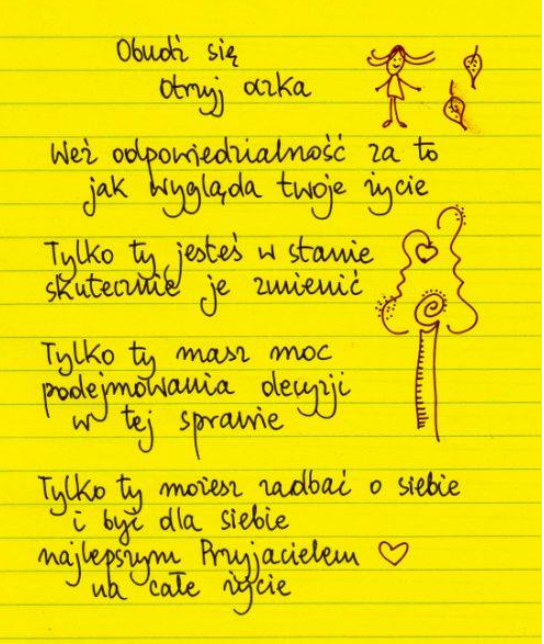 Obudź się
Otrzyj oczka
Weź odpowiedzialność za to
jak wygląda twoje życie
Tylko ty jesteś w stanie
skutecznie je zmienić
Tylko ty masz moc
podejmowania decyzji
w tej sprawie
Tylko ty możesz zadbać o siebie
i być dla siebie
najlepszym Przyjacielem
na całe życie